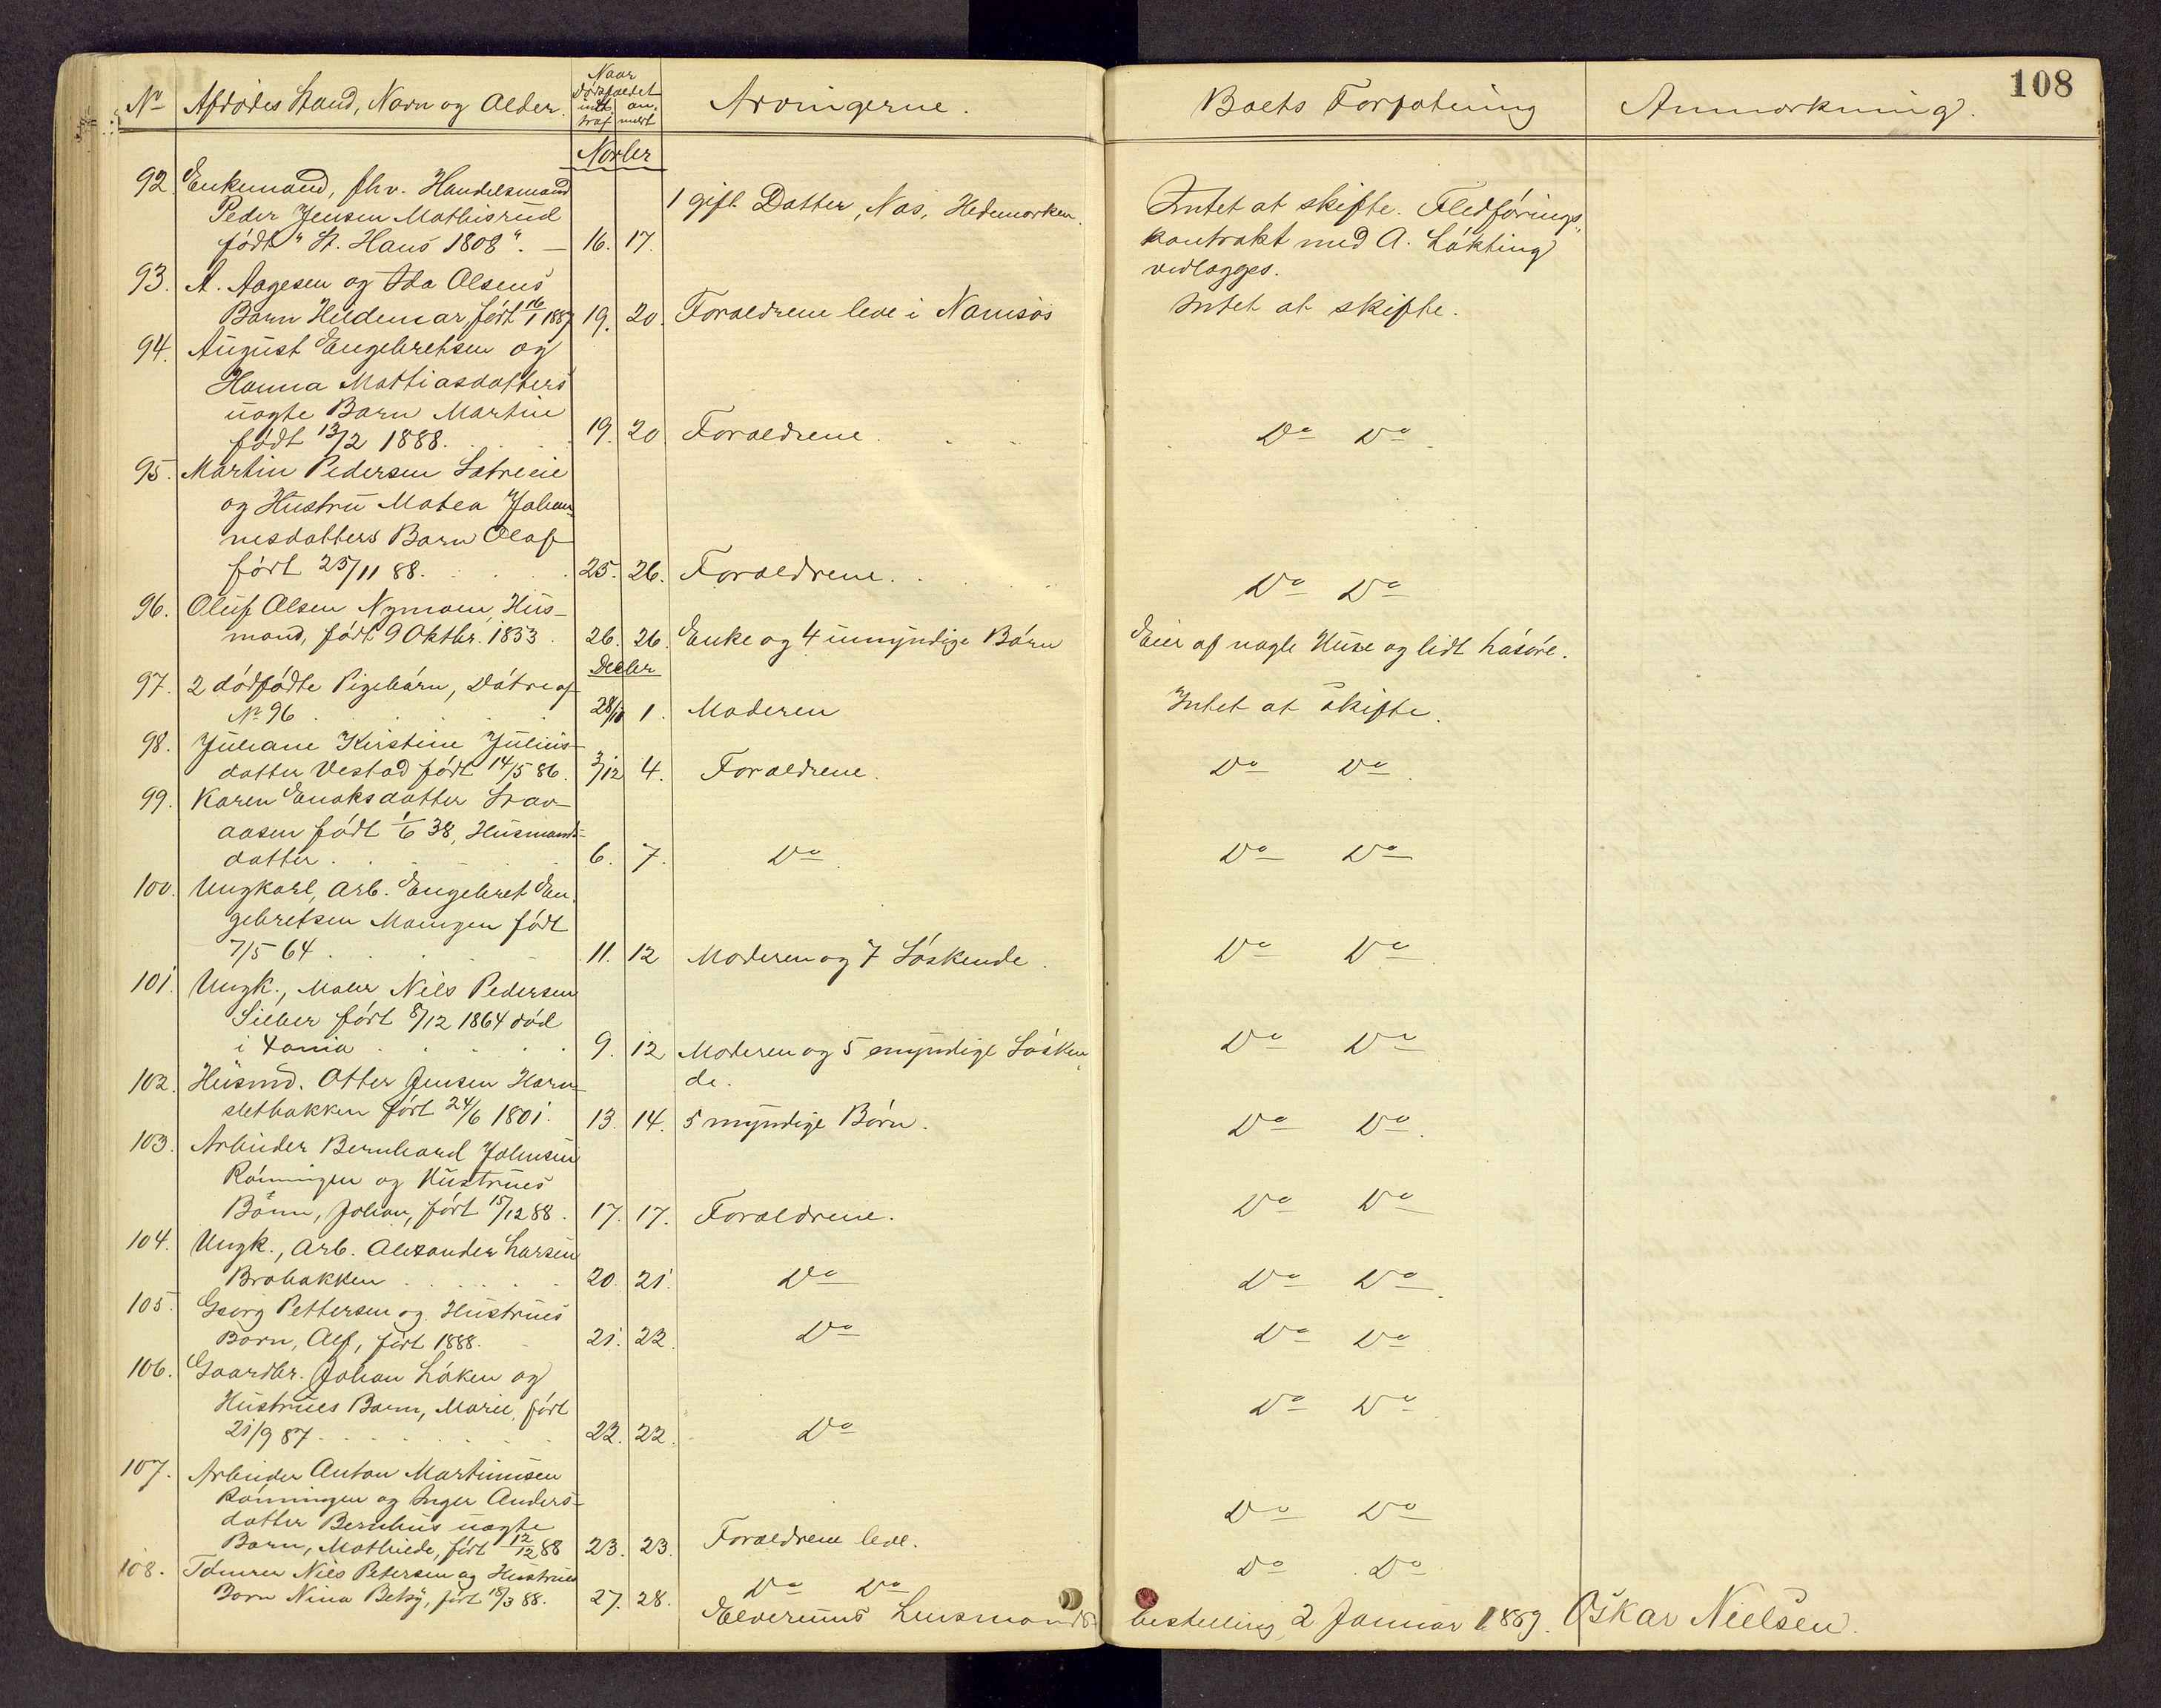 108
No Afdödes Stand, Navn og Alder. Naar Dödsfaldet indtraf anmeldt Arvingerne. Boets Forfatning Anmærkning.
Novbr
92. Enkemand, fhv. Handelsmand
Peder Jensen Mathisrud
födt "St. Hans 1808". 16. 17. 1 gift Datter, Næs, Hedemarken. Intet at skifte. Fledförings-
kontrakt med A. Lökting
vedlægges.
93. A. Aagesen og Ida Olsens
Barn Heldemar födt 16/1 1887 19. 20. Forældrene leve i Namsos Intet at skifte.
94. August Engebretsen og
Hanna Mathiasdatters
uægte Barn Martin
födt 13/2 1888. 19. 20 Forældrene. Do Do
95. Martin Pedersen Sætreeie
og Hustru Matea Johan-
nesdatters Barn Olaf
födt 25/11 88. 25. 26. Forældrene. Do Do
96. Oluf Olsen Nymoen, Hus-
mand, födt 9 Oktbr. 1853. 26. 26. Enke og 4 umyndige Börn Eier af nogle Huse og lidt Lösöre.
Decbr
97. 2 dödfödte Pigebörn, Dötre af
No 96 28/11 1. Moderen Intet at skifte.
98. Juliane Kirstine Julius-
datter Vestad födt 14/5 86. 3/12 4. Forældrene. Do Do
99. Karen Enoksdatter
aasen födt 1/6 38, Husmands-
datter. 6. 7. Do Do Do
100. Ungkarl, Arb. Engebret En-
gebretsen Moengen födt
7/5 64. 11. 12 Moderen og 7 Söskende. Do Do
101. Ungk., Maler Nils Pedersen
Sieber födt 8/12 1864 död
i Xania 9. 12 Moderen og 5 myndige Sösken- Do Do
de.
102. Husmd. Otter Jensen Horn-
sletbakken födt 24/6 1801. 13. 14. 5 myndige Börn. Do Do
103. Arbeider Bernhard Johnsen
Rönningen og Hustrues
Barn, Johan, födt 15/12 88. 17. 17. Forældrene. Do Do
104. Ungk., Arb. Alexander Larsen
Brobakken 20. 21. Do Do Do
105. Georg Pettersen og Hustrues
Barn, Alf, födt 1888. 21. 22. Do Do Do
106. Gaardbr. Johan Löken og
Hustrues Barn, Marie, födt
21/9 87. 22. 22. Do Do Do
107. Arbeider Anton Martinusen
Rönningen og Inger Anders-
datter Bernhus uægte
Barn, Mathilde, födt 12/12 88 23. 23. Forældrene leve. Do Do
108. Tömrer Nils Petersen og Hustrues
Barn Nina Betsy, födt 18/3 88. 27. 28. Do Do Do Do
Elverums Lensmands- bestilling 2 Januar 1889. Oskar Nielsen.